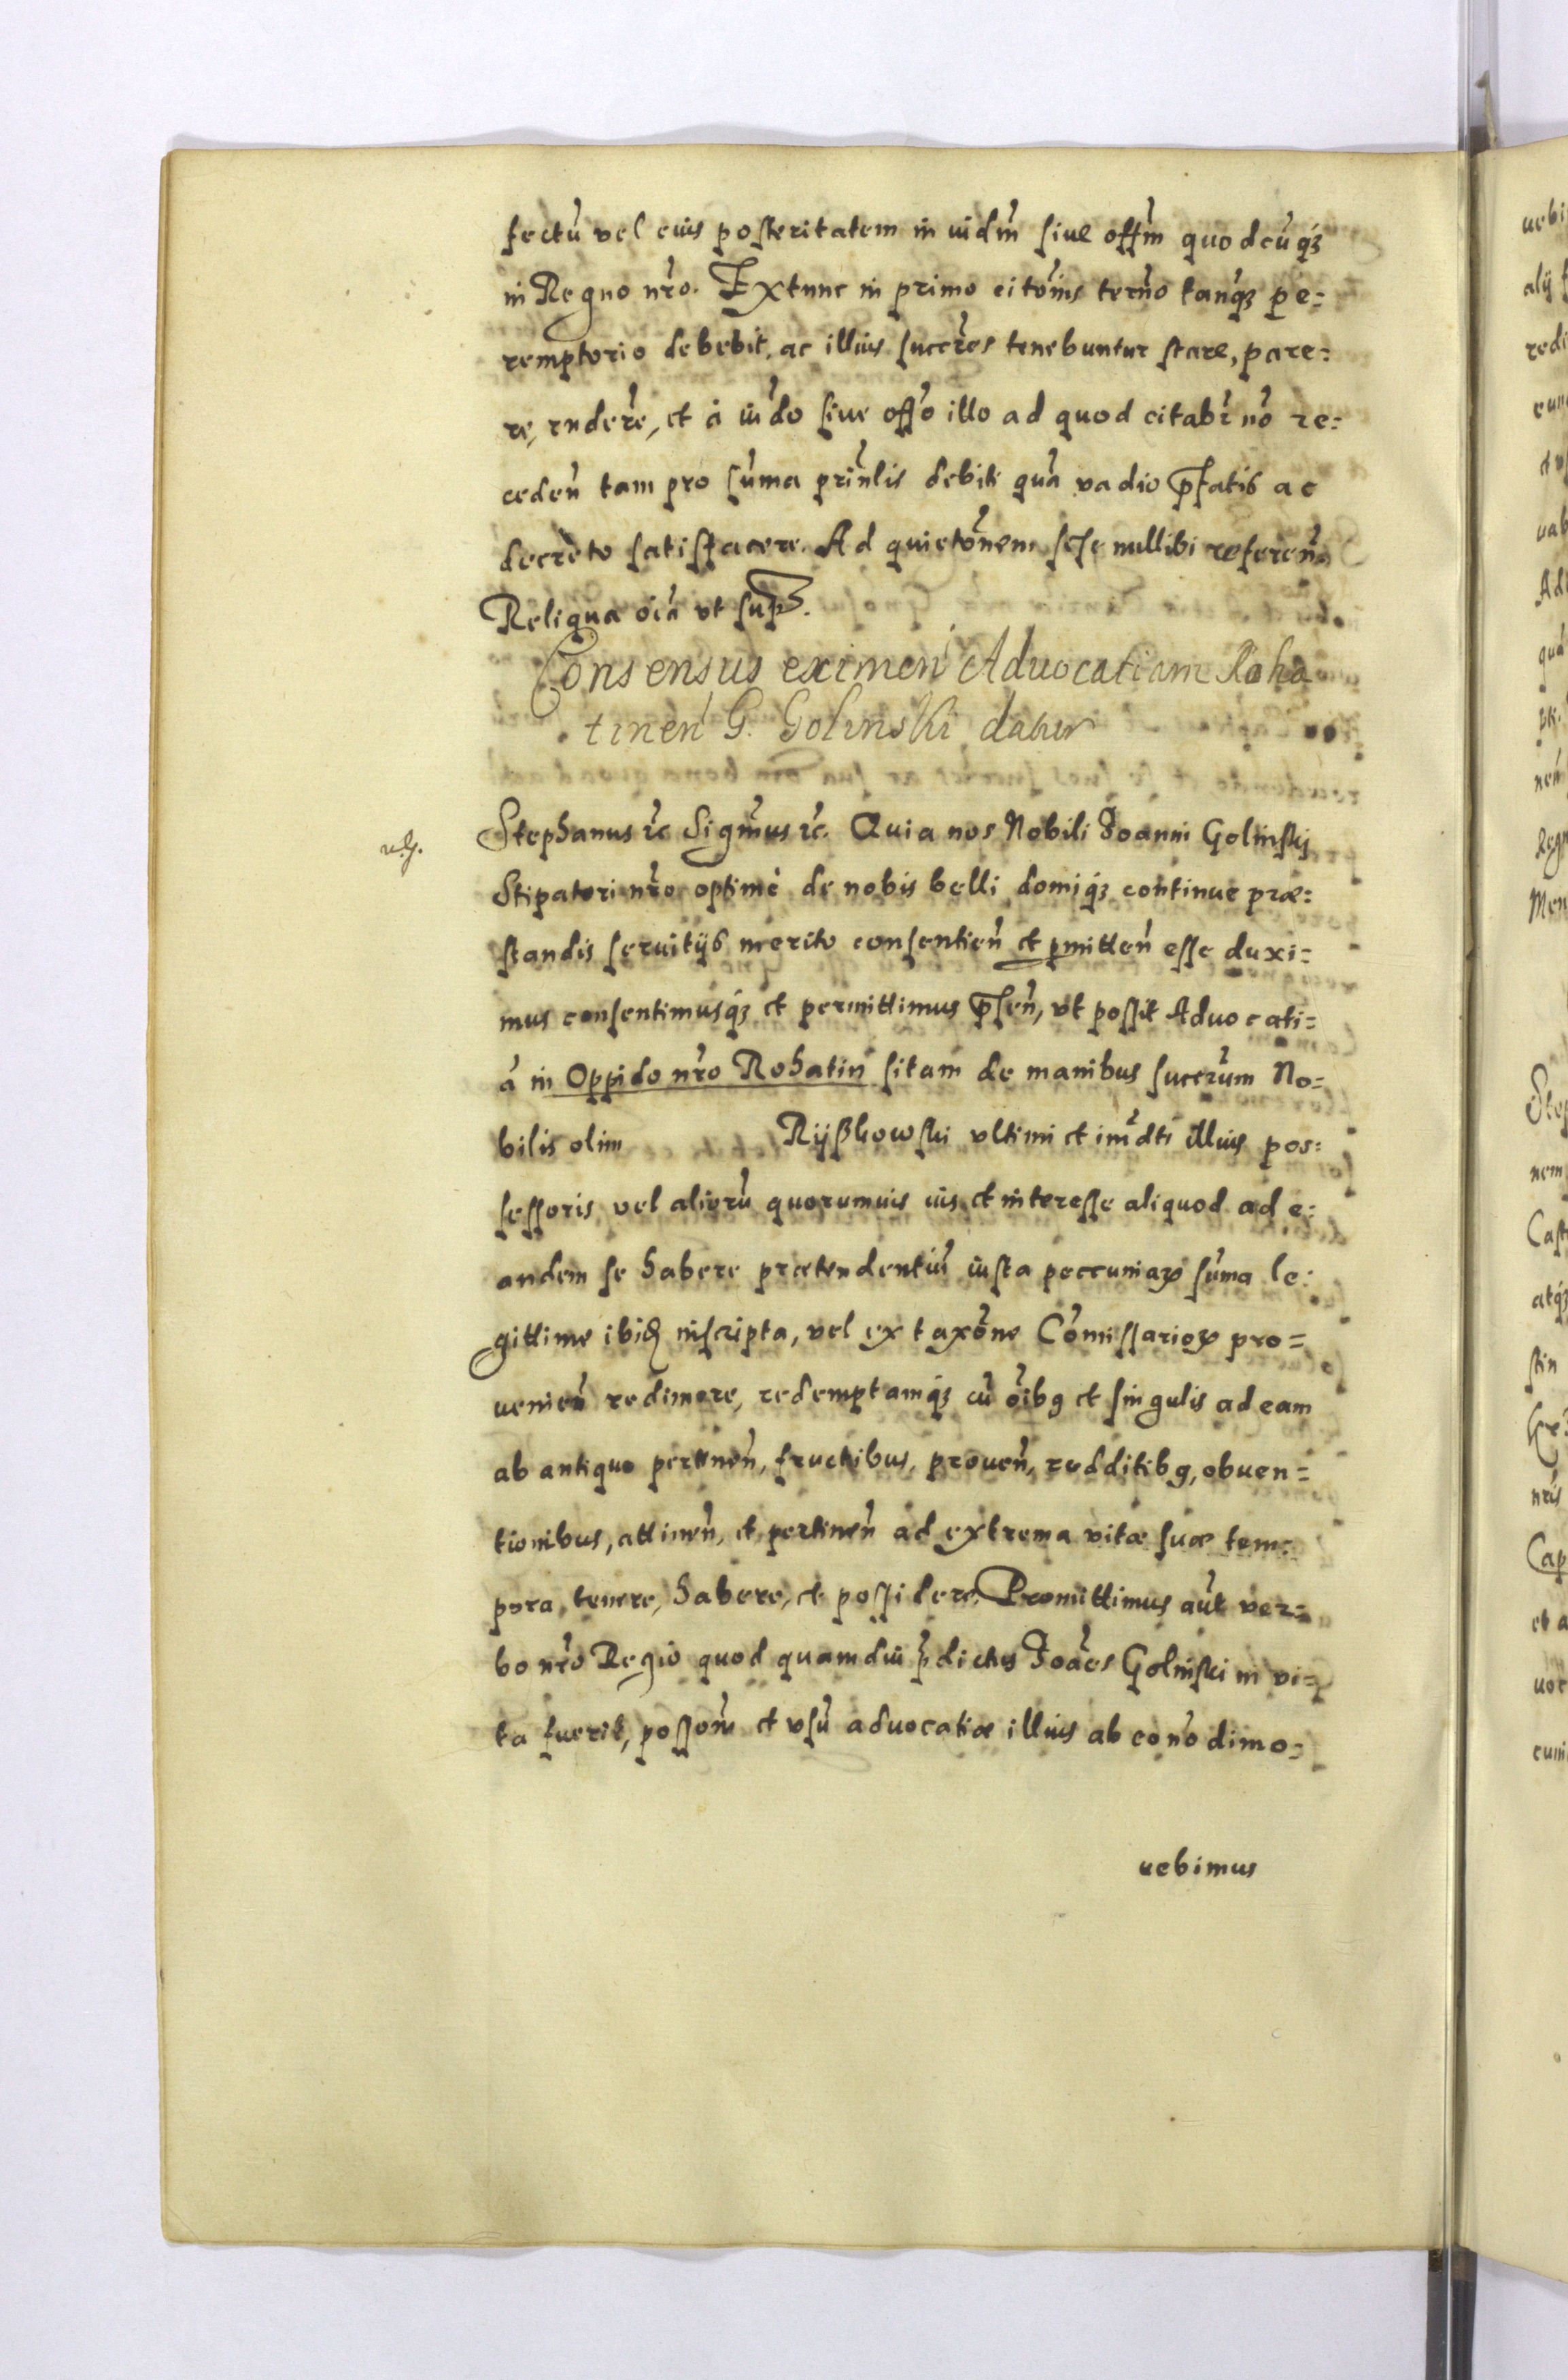 fectũ vel eius posteritatem in iudm̃ siue offm̃ quodcũqʒ
in Regno nr̃o. Extunc in primo citõnis term̃o tanqʒ pe=
remptorio debebit, ac illius succr̃es tenebuntur stare, pare=
re, rndere, et à iud̃o siue offõ illo ad quod citabr̃ nõ re=
ceden̄ tam pro sũma prin̄lis debiti quã vadio p̄fatis ac
decreto satisfacere. Ad quietõnem sese nullibi referen̄
Reliqua oĩa vt sup̃.
Consensus eximen̄ Aduocatiam Roha
tinen̄ G. Golinski datur
Stephanus ꝛc Sigm̃us ꝛc. Quia nos Nobili Joanni Golinskj
Stipatori nr̃o optimè de nobis belli domiqʒ continue præ=
standis seruitijs merito consentien̄ et pmitten̄ esse duxi=
mus consentimusqʒ et permittimus p̄sen̄, vt possit Aduocati=
ã in Oppido nr̃o Rohatin sitam de manibus succr̃um No=
bilis olim Rijßkowski vltimi et im̃dti illius pos=
sessoris vel aliorũ quorumuis ius et interesse aliquod ad e=
andem se habere prætendentiũ iusta peccuniaꝝ sũma le=
gittime ibid inscripta, vel ex taxõne Cõmissarioꝝ pro=
uenien̄ redimere, redemptamqʒ cũ oĩbꝯ et singulis ad eam
ab antiquo pertinen̄, fructibus, prouen̄, redditibꝯ, obuen=
tionibus, attinen̄, et pertinen̄ ad extrema vitæ suæ tem=
pora, tenere, habere, et possidere. Promittimus aũt ver=
bo nr̃o Regio quod quamdiu p̄dictus Joães Golinski in vi=
ta fuerit, possom̃ et vsũ aduocatiæ illius ab eo nõ dimo=
uebimus